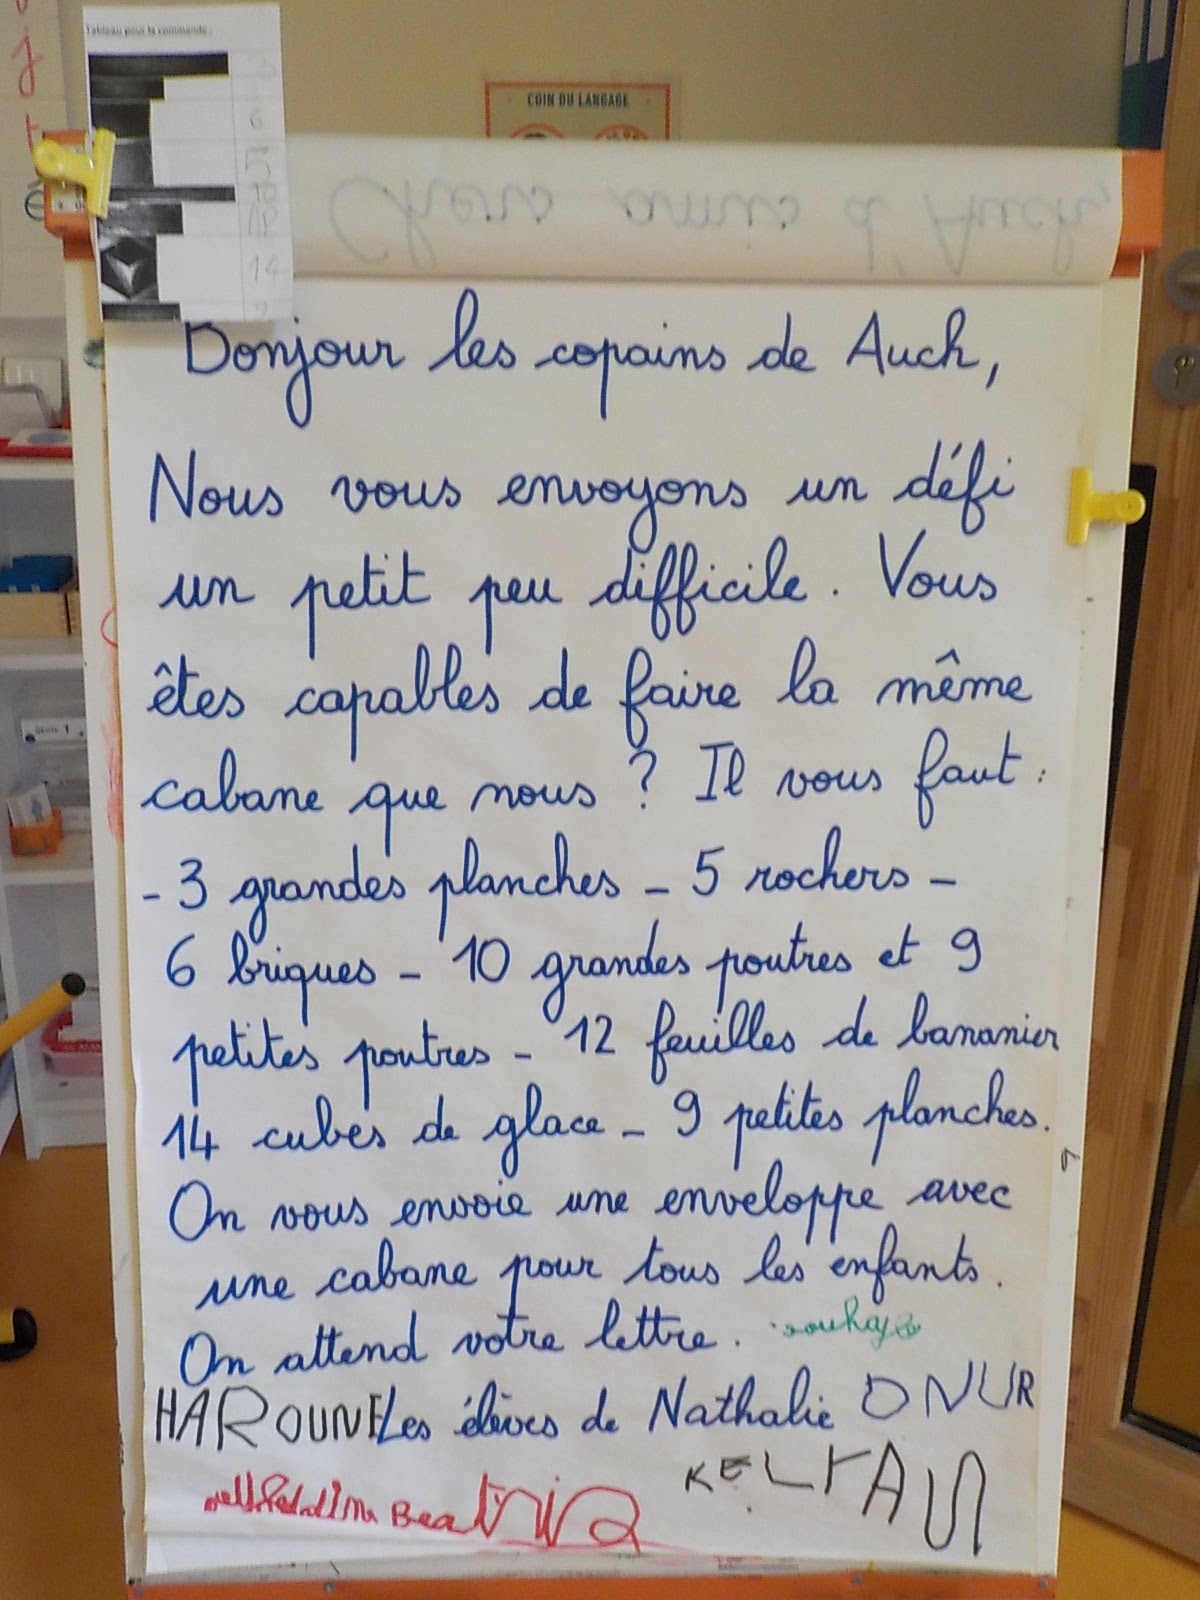 Tableau pour la commande.
6
5
10
12
14
COIN DU LANGAGE
Chers amis d'Auch,
Bonjour les copains de Auch,
Nous vous envoyons un défi
un petit peu difficile. Vous
êtes capables de faire la même
cabane que nous ? Il vous faut :
- 3 grandes planches - 5 rochers -
6 briques - 10 grandes poutres et 9
petites poutres - 12 feuilles de bananier
14 cubes de glace - 9 petites planches.
On vous envoie une enveloppe avec
une cabane pour tous les enfants.
On attend votre lettre.
HAROUNE Les élèves de Nathalie ONUR
KELYAN